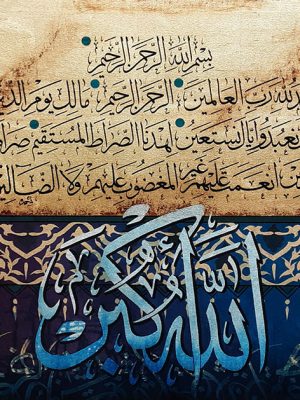 بسم الله الرحمن الرحيم
لله رب العالمين الرحمن الرحيم مالك يوم
نعبد وإياك نستعين اهدنا الصراط المستقيم
انعمت عليهم غير المغضوب عليهم ولا الضالين
الله أكبر